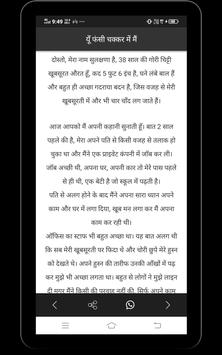 9:49
यूँ फंसी चक्कर में मैं
दोस्तो, मेरा नाम सुलक्षणा है, 38 साल की गोरी चिट्टी
खूबसूरत औरत हूँ, कद 5 फुट 6 इंच है, घने लंबे बाल हैं
और बहुत ही अच्छा गदराया बदन है, जिस वजह से मेरी
खूबसूरती में और भी चार चाँद लग जाते हैं।
आज आपको मैं अपनी कहानी सुनाती हूँ। बात 2 साल
पहले की है, मेरा अपने पति से किसी वजह से तलाक हो
चुका था और मैंने एक प्राइवेट कंपनी में जॉब कर ली।
जॉब अच्छी थी, अपना घर, अपनी कार तो मेरे पास पहले
से ही थी, एक बेटी है जो स्कूल में पढ़ती है।
पति से अलग होने के बाद मैंने अपना सारा ध्यान अपने
काम और घर में लगा दिया, खूब मन लगा कर मैं अपना
काम कर रही थी।
ऑफिस का स्टाफ भी बहुत अच्छा था। यह बात अलग थी
कि सब मेरी खूबसूरती पर फिदा थे और चोरी छुपे मेरे हुस्न
को देखते थे। अपने हुस्न की तारीफ उनकी आँखों में पढ़
कर मुझे भी अच्छा लगता था। बहुत से लोगों ने मुझे लाइन
दी मगर मैंने किसी की परवाह नहीं की, सिर्फ अपने काम